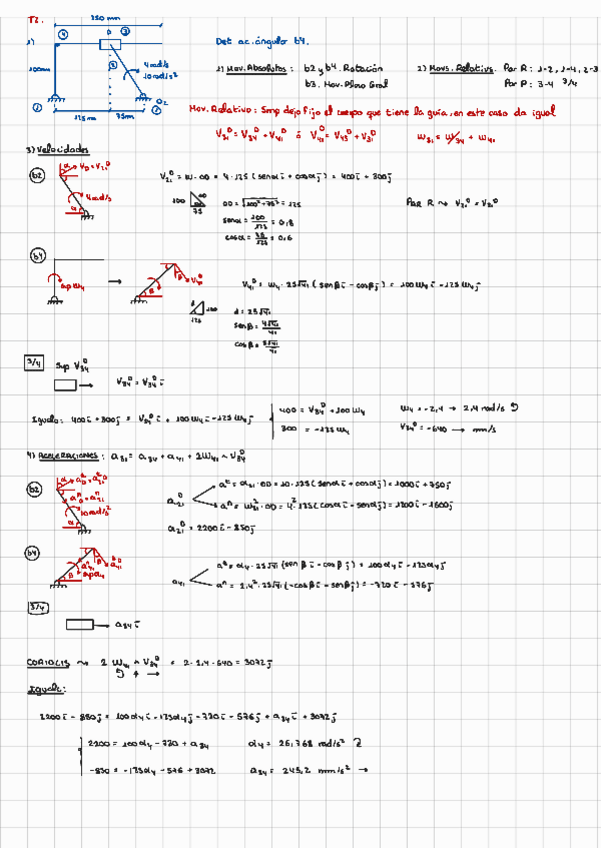 T2.
250 mm
1)
D
100mm
4 rad/s
10 rad/s²
O₂
125 mm
75mm
Det ac. ángulo b4.
1) Mov. Absolutos: b2 y b4. Rotación
b3. Mov. Plano Gral
2) Movs. Relativos. Par R: 1-2, 1-4, 2-3
Par P: 3-4 3/4
Mov. Relativo: Smp dejo fijo el cuerpo que tiene la guía, en este caso da igual
V₃₁ᴰ = V₃₄ᴰ + V₄₁ᴰ ó V₄₁ᴰ = V₄₃ᴰ + V₃₁ᴰ
ω₃₁ = ω₃₄ + ω₄₁
3) Velocidades
b2
α V_D = V₂₁ᴰ
4 rad/s
α
V₂₁ᴰ = ω · OD = 4 · 125 (senα i + cosα j) = 400i + 300j
100
75
OD = √(100² + 75²) = 125
senα = 100/125 = 0,8
cosα = 75/125 = 0,6
Par R → V₂₁ᴰ = V₃₁ᴰ
b4
sup ω₄
β
V₄₁ᴰ
V₄₁ᴰ = ω₄ · 25√41 (senβ i - cosβ j) = 100ω₄ i - 125ω₄ j
100
125
d = 25√41
senβ = 4√41/41
cosβ = 5√41/41
3/4
Sup V₃₄ᴰ
V₃₄ᴰ = V₃₄ᴰ i
Igualo: 400i + 300j = V₃₄ᴰ i + 100ω₄ i - 125ω₄ j
400 = V₃₄ᴰ + 100ω₄
300 = -125ω₄
ω₄ = -2,4 → 2,4 rad/s
V₃₄ᴰ = 640 → mm/s
4) Aceleraciones: a₃₁ = a₃₄ + a₄₁ + 2ω₄₁ ∧ V₃₄ᴰ
b2
10 rad/s²
α
a₂₁ᴰ
aᵗ = α₂₁ · OD = 10 · 125 (senα i + cosα j) = 1000i + 750j
aⁿ = ω₂₁² · OD = 4² · 125 (cosα i - senα j) = 1200i - 1600j
a₂₁ᴰ = 2200i - 850j
b4
sup α₄
β
a₄₁
aᵗ = α₄ · 25√41 (senβ i - cosβ j) = 100α₄ i - 125α₄ j
aⁿ = 2,4² · 25√41 (-cosβ i - senβ j) = -720i - 576j
3/4
a₃₄ i
CORIOLIS → 2 ω₄₁ ∧ V₃₄ᴰ = 2 · 2,4 · 640 = 3072j
Igualo:
2200i - 850j = 100α₄ i - 125α₄ j - 720i - 576j + a₃₄ i + 3072j
2200 = 100α₄ - 720 + a₃₄
-850 = -125α₄ - 576 + 3072
α₄ = 26,768 rad/s²
a₃₄ = 243,2 mm/s² →